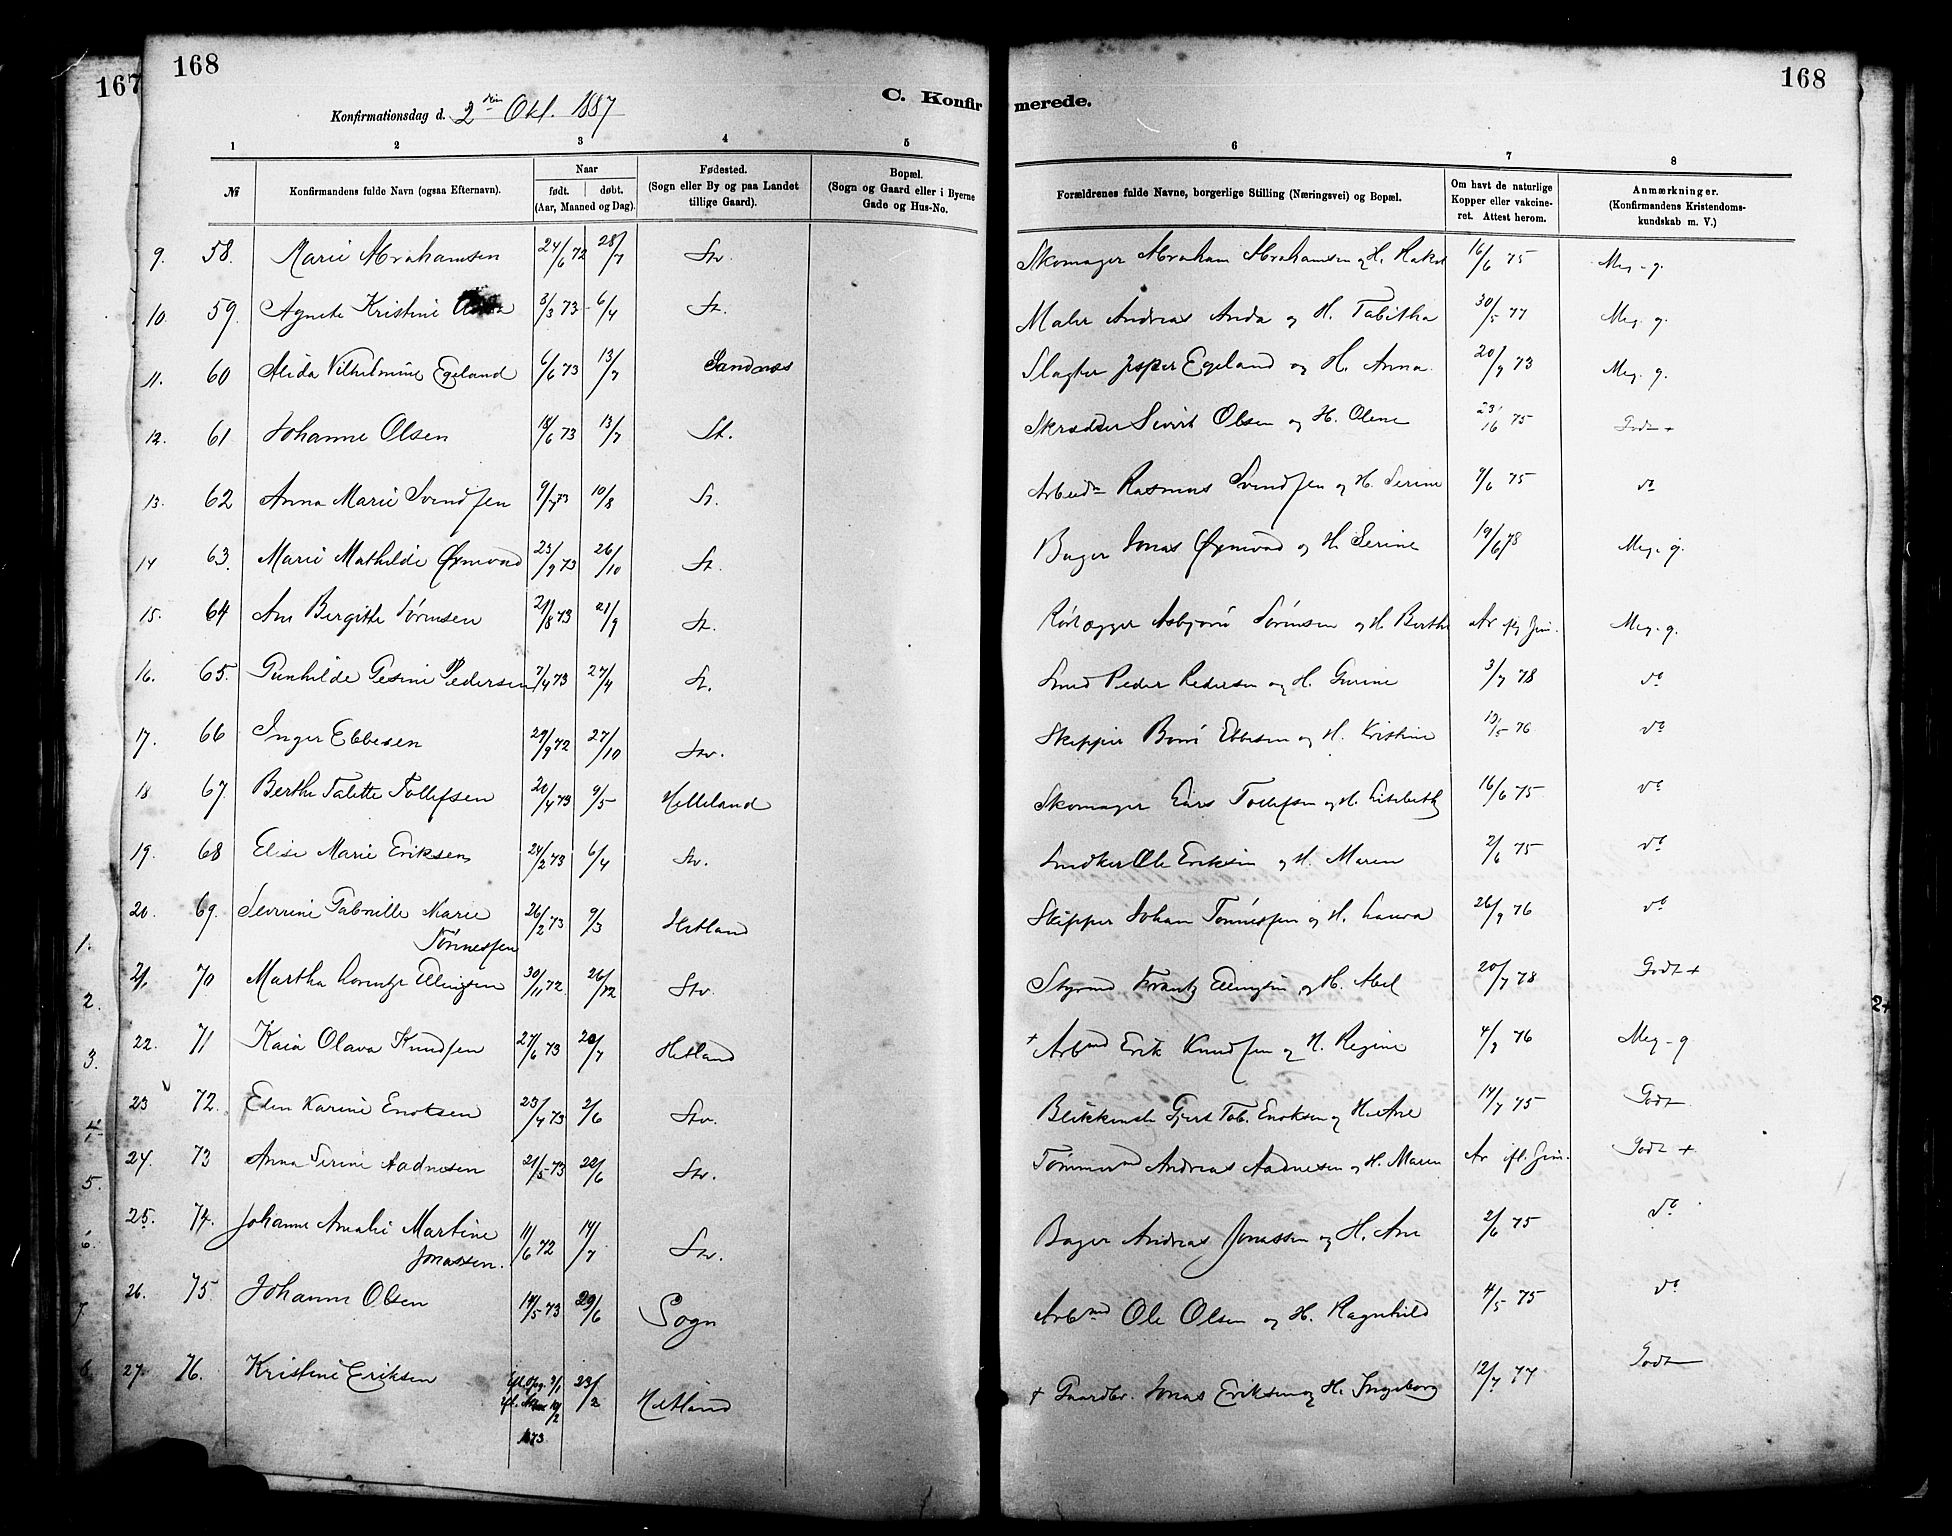 167
168
168
C. Konfirmerede.
Konfirmationsdag d. 2den Okt. 1887
1 2 3 4 5 6 7 8
№ Konfirmandens fulde Navn (ogsaa Efternavn). Naar født. døbt. (Aar, Maaned og Dag). Fødested. (Sogn eller By og paa Landet tillige Gaard). Bopæl. (Sogn og Gaard eller i Byerne Gade og Hus-No. Forældrenes fulde Navne, borgerlige Stilling (Næringsvei) og Bopæl. Om havt de naturlige Kopper eller vakcineret. Attest herom. Anmærkninger. (Konfirmandens Kristendomskundskab m. V.)
9. 58. Marie Abrahamsen 24/6 72 28/7 Stv. Skomager Abraham Abrahamsen og H. Rakel 16/6 75 Meg. g.
10. 59. Agnete Kristine 3/3 73 6/4 St. Maler Andreas Anda og H. Tabitha 30/5 77 Meg. g.
11. 60 Alida Vilhelmine Egeland 6/6 73 13/7 Sandnæs Slagter Jesper Egeland og H. Anna 20/9 73 Meg. g.
12. 61 Johanne Olsen 18/6 73 13/7 St. Skrædder Sivert Olsen og H. Olene 23/16 75 Godt +
13. 62 Anna Marie Svendsen 9/7 73 10/8 St. Arbeidm Rasmus Svendsen og H. Serine 9/6 75 do
14 63. Marie Mathilde Øxnevad 23/9 73 26/10 St. Bager Jonas Øxnevad og H. Serine 19/6 78 Meg. g.
15. 64 Ane Bergitte Sørensen 21/8 73 21/9 St. Rørlægger Asbjørn Sørensen og H. Berthe Ar Meg. g.
16. 65. Gunhilde Gesine Pedersen 7/4 73 27/4 St. Smed Peder Pedersen og H. Gurine 3/7 78 do
17. 66 Inger Ebbesen 29/9 72 27/10 Stv. Skipper Ebbesen og H. Kristine 13/5 76 do
18 67. Berthe Talette Tollefsen 20/4 73 9/5 Helleland Skomager Lars Tollefsen og H. Lisebeth 16/6 75 do
19. 68 Elise Marie Eriksen 24/2 73 6/4 Stv. Snedker Ole Eriksen og H. Maren 2/6 75 do
20. 69. Severine Gabrielle Marie Tønnessen 26/2 73 9/3 Hetland Skipper Johan Tønnessen og H. Laura 26/9 76 do
21. 70 Martha Lorentze Ellingsen 30/11 72. 26/12 Stv. Styrmd Frantz Ellingsen og H. Abel 20/7 78 Godt +
22. 71 Kaia Olava Knudsen 27/6 73 20/7 Hetland + Arbmd Erik Knudsen og H. Regine 4/9 76 Meg. g
23 72. Eden Karine Enoksen 23/4 73 2/6 Stv. Blikkensl. Gjert Tob. Enoksen og H. Ane 14/7 75 Godt
24. 73 Anna Serine Aadnesen 21/5 73 22/6 Stv. Tømmermd Andreas Aadnesen og H. Maren Ar Godt +
25. 74. Johanne Amalie Martine Jonassen. 11/6 72 14/7 Stv. Bager Andreas Jonassen og H. Ane 2/6 75 do
26. 75. Johanne Olsen 14/5 73 29/6 Sogn Arbmd Ole Olsen og H. Ragnhild 4/5 75 do
27. 76. Kristine Eriksen 1873 23/2 Hetland + Gaardbr. Jonas Eriksen og H. Ingeborg 12/7 77 Godt
1.
2.
3.
4.
5.
6.
7.
8.
2+